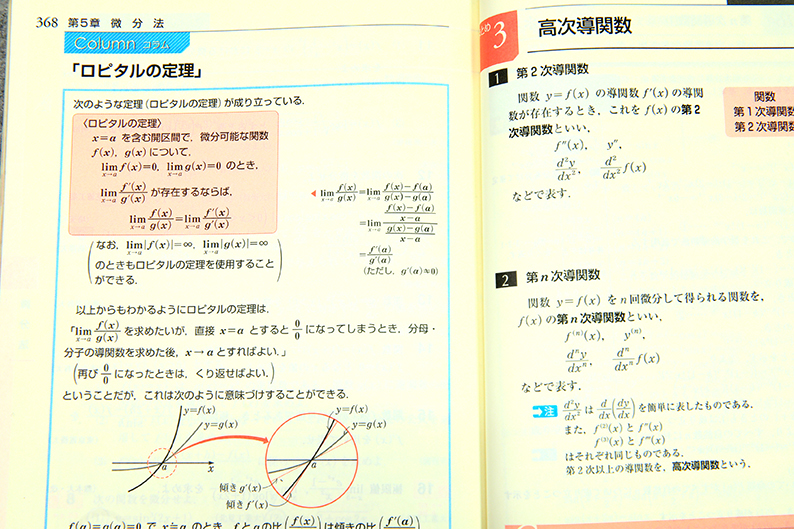 368 第5章 微分法
Column コラム
「ロピタルの定理」
次のような定理(ロピタルの定理)が成り立っている.
〈ロピタルの定理〉
x=a を含む開区間で，微分可能な関数
f(x), g(x) について,
lim_{x→a} f(x)=0, lim_{x→a} g(x)=0 のとき,
lim_{x→a} f′(x)/g′(x) が存在するならば,
lim_{x→a} f(x)/g(x)=lim_{x→a} f′(x)/g′(x)
(なお, lim_{x→a}|f(x)|=∞, lim_{x→a}|g(x)|=∞
のときもロピタルの定理を使用すること
ができる.)
◀ lim_{x→a} f(x)/g(x)=lim_{x→a} (f(x)−f(a))/(g(x)−g(a))
=lim_{x→a} ((f(x)−f(a))/(x−a))/((g(x)−g(a))/(x−a))
=f′(a)/g′(a)
(ただし, g′(a)≈0)
以上からもわかるようにロピタルの定理は,
「lim_{x→a} f(x)/g(x) を求めたいが，直接 x=a とすると 0/0 になってしまうとき，分母・
分子の導関数を求めた後, x→a とすればよい.」
(再び 0/0 になったときは，くり返せばよい.)
ということだが，これは次のように意味づけすることができる.
y=f(x)
y=g(x)
a
x
y=f(x)
y=g(x)
a
傾き g′(x)
傾き f′(x)
f(a)=g(a)=0 で x=a のとき, f と g の比 (f(x)/g(x)) は傾きの比 (f′(a)
3
高次導関数
1 第2次導関数
関数 y=f(x) の導関数 f′(x) の導関
数が存在するとき，これを f(x) の第2
次導関数といい,
f″(x), y″,
d²y/dx², d²/dx² f(x)
などで表す.
関数
第1次導関数
第2次導関数
2 第n次導関数
関数 y=f(x) を n回微分して得られる関数を,
f(x) の第n次導関数といい,
f⁽ⁿ⁾(x), y⁽ⁿ⁾,
dⁿy/dxⁿ, dⁿ/dxⁿ f(x)
などで表す.
➡注 d²y/dx² は d/dx(dy/dx) を簡単に表したものである.
また, f⁽²⁾(x) と f″(x)
f⁽³⁾(x) と f‴(x)
はそれぞれ同じものである.
第2次以上の導関数を，高次導関数という.